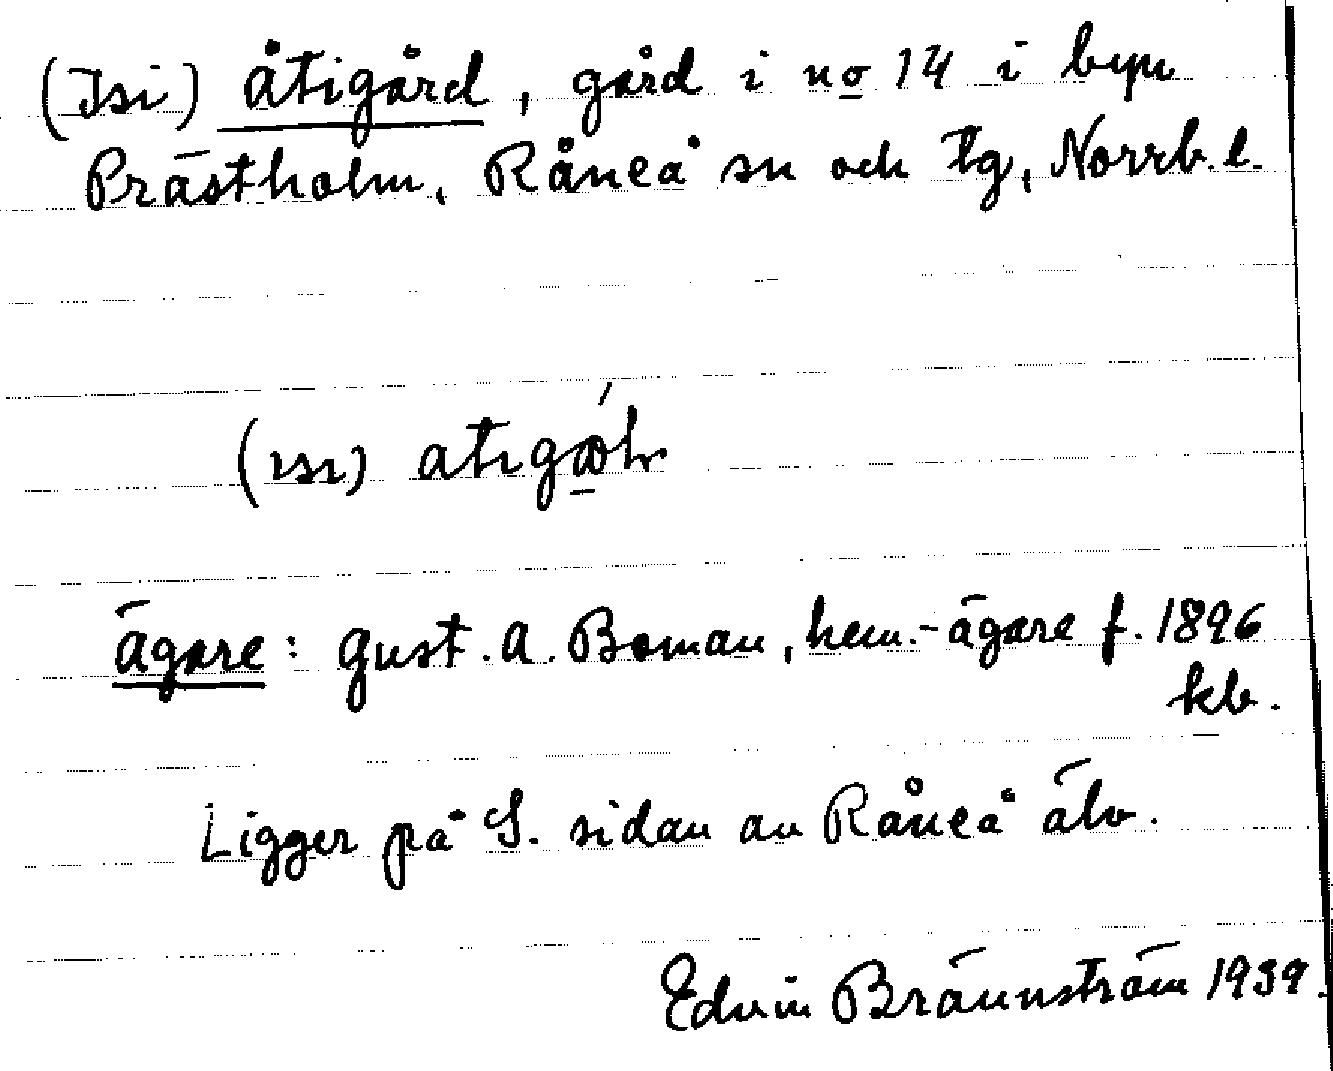 (Isi) åtigård, gård i no 14 i byn
Prästholm, Råneå sn och tg, Norrb. l.
(ısı) atıgǻh
ägare: Gust. A. Boman, hem.-ägare f. 1896
kb.
Ligger på S. sidan av Råneå älv.
Edvin Brännström 1939.